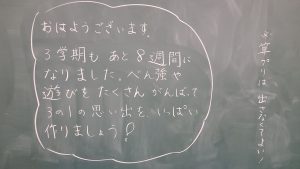 おはようございます。
3学期も あと8週間に
なりました。べん強や
遊びを たくさん がんばって
3の1の思い出を いっぱい
作りましょう!
算プリは 出さなくてよい!